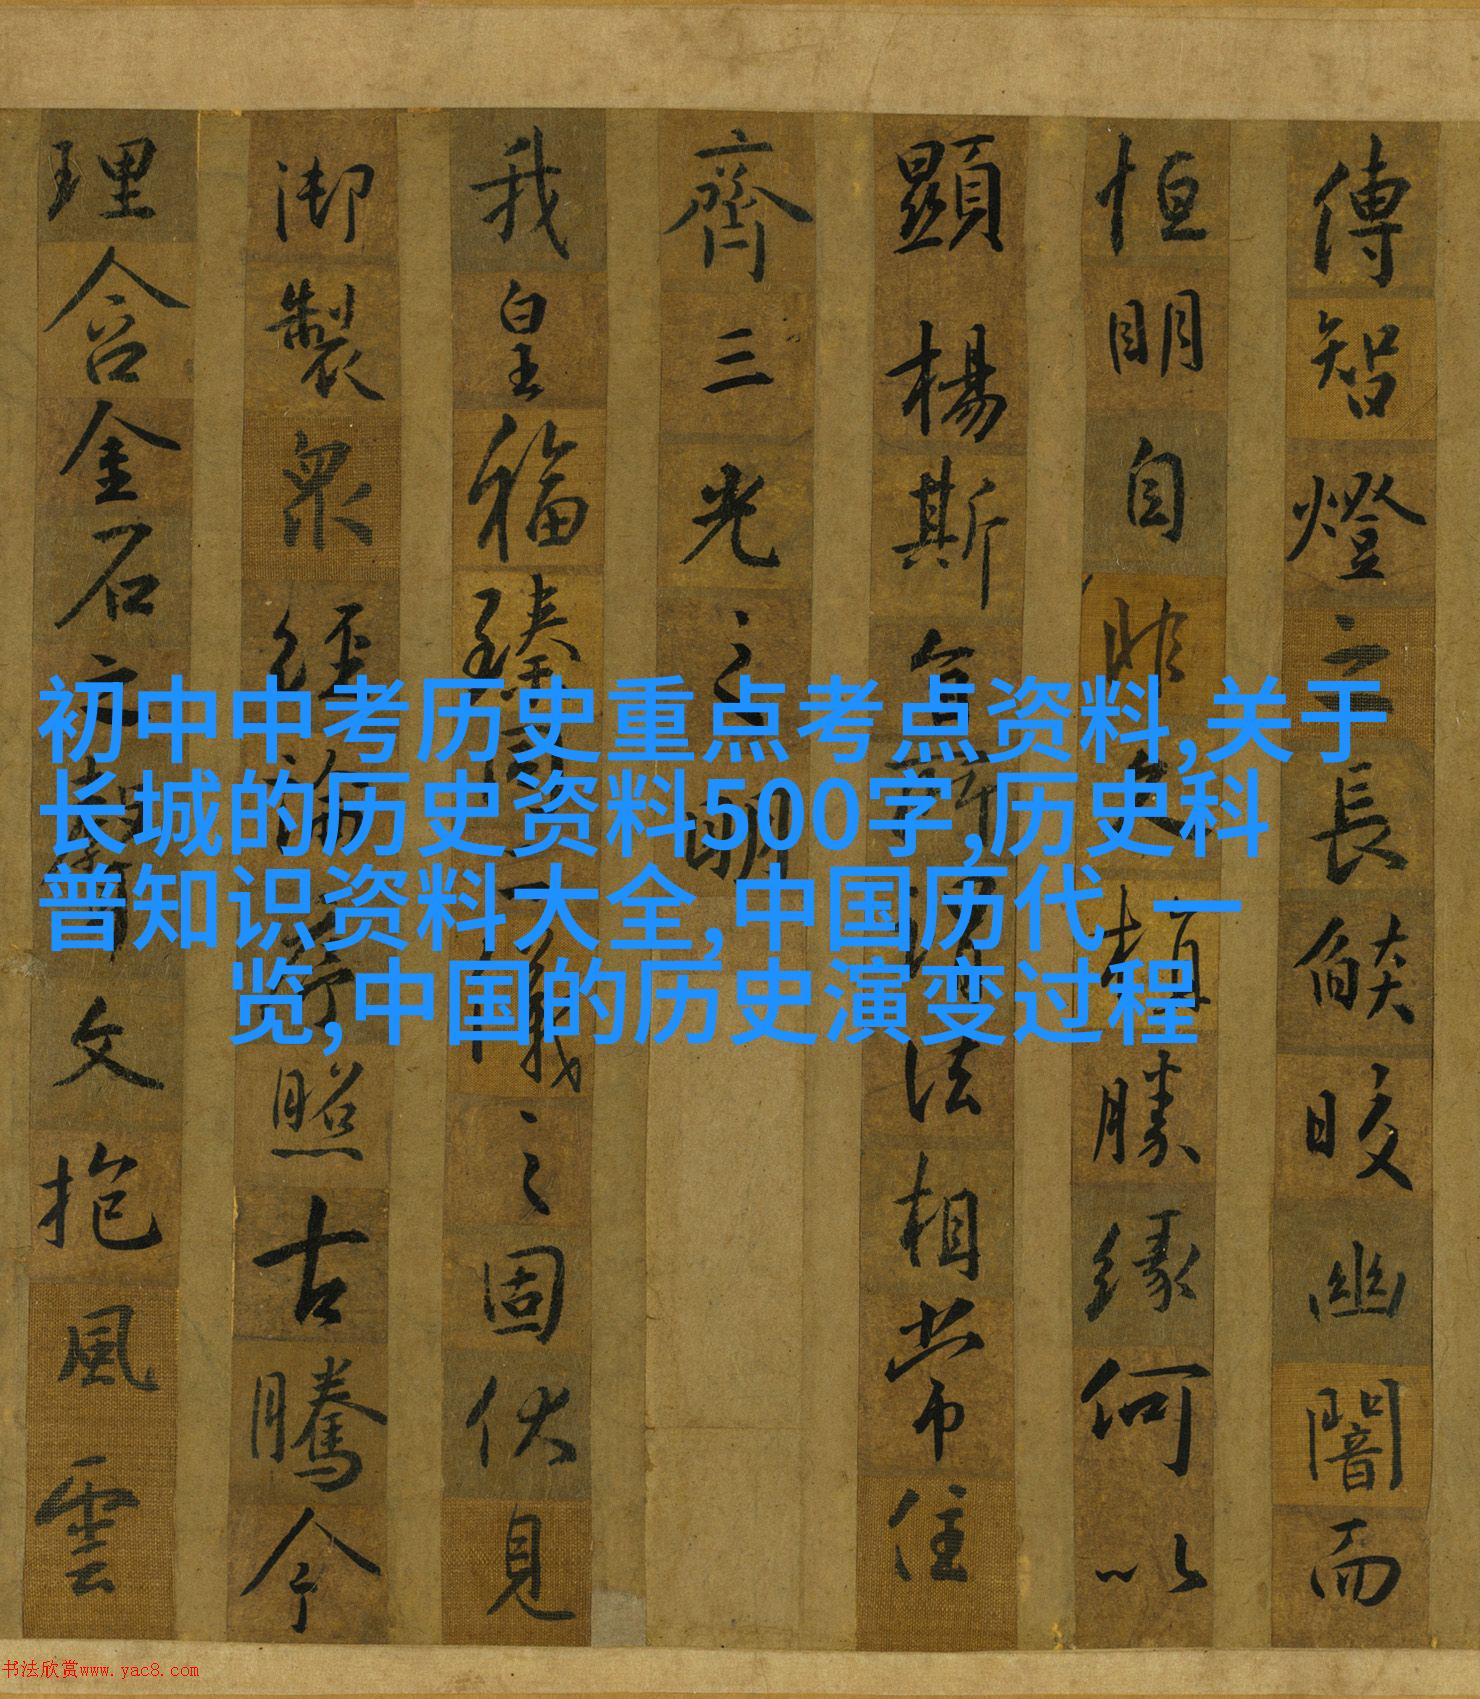 初中中考历史重点考点资料,关于
长城的历史资料500字,历史科
普知识资料大全,中国历代 一
览,中国的历史演变过程
傳智燈之長燄皎幽闇而
恒明自非久植勝緣何以
顯揚斯旨所謂法相常住
齊三光之明
我皇福臻同二儀之固伏見
御製眾經論序照古騰今
理含金石之聲文抱風雲
书法欣赏www.yac8.com